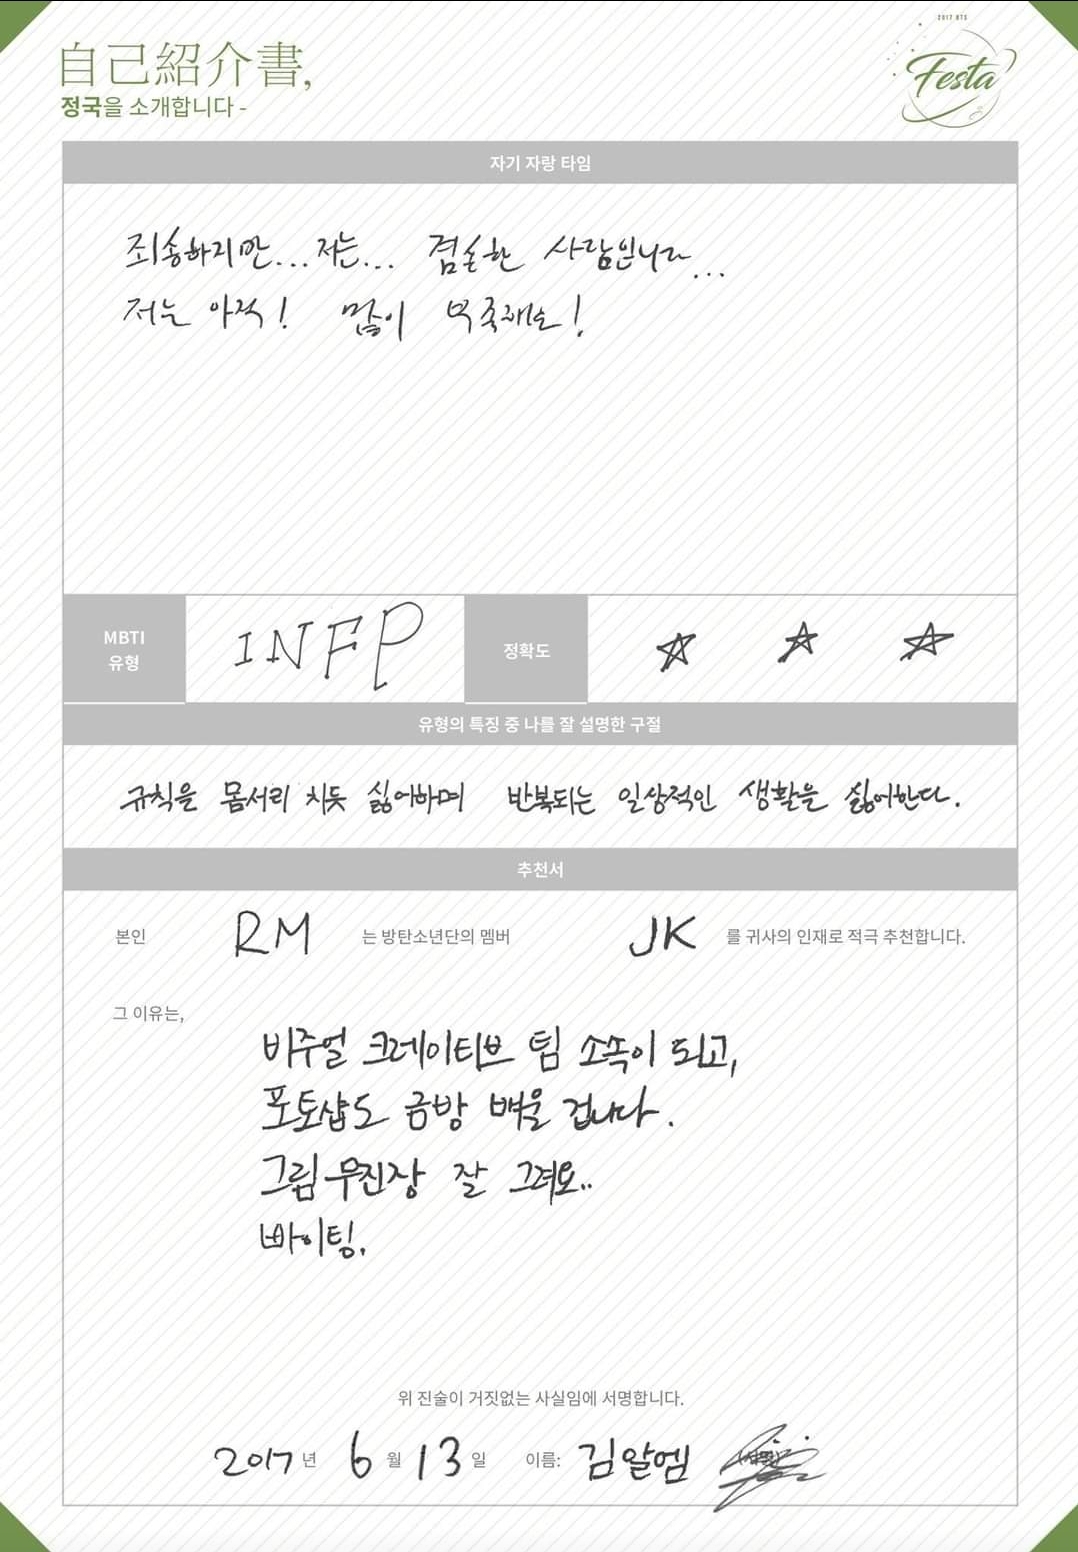 2017 BTS
Festa
自己紹介書,
정국을 소개합니다 -
자기 자랑 타임
죄송하지만... 저는... 겸손한 사람입니다...
저는 아직! 많이 부족해요!
MBTI 유형
INFP
정확도
☆ ☆ ☆
유형의 특징 중 나를 잘 설명한 구절
규칙을 몸서리 치듯 싫어하며 반복되는 일상적인 생활을 싫어한다.
추천서
본인 RM 는 방탄소년단의 멤버 JK 를 귀사의 인재로 적극 추천합니다.
그 이유는,
비주얼 크레이티브 팀 소속이 되고,
포토샵도 금방 배울 겁니다.
그림 무진장 잘 그려요..
빠이팅.
위 진술이 거짓없는 사실임에 서명합니다.
2017 년 6 월 13 일 이름: 김알엠 (서명)